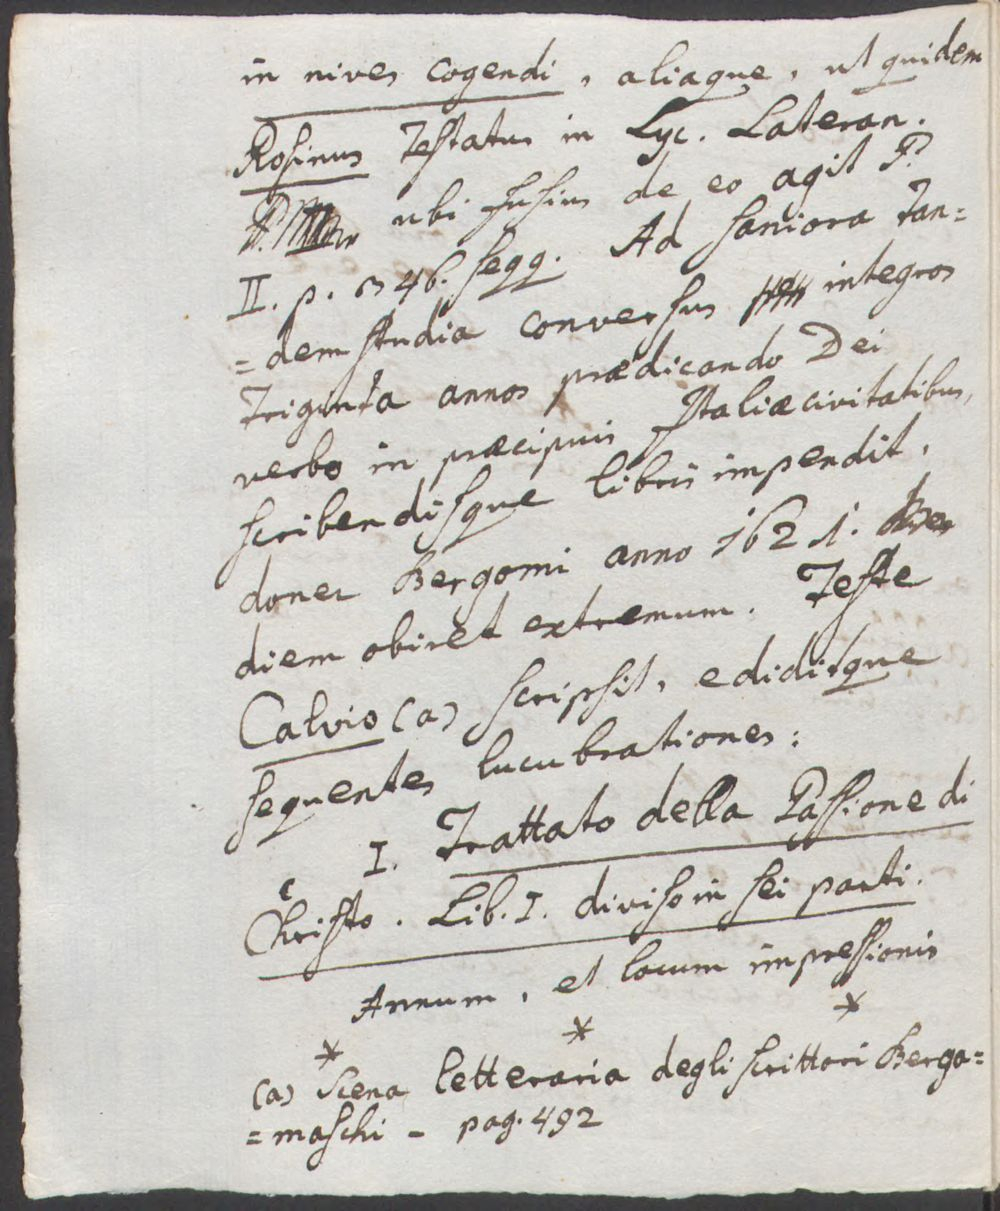 in nives cogendi, aliaque, ut quidem
Rosinus Testatus in Lyc. Lateran.
ubi fusius de eo agit P.
II. p. 346. seqq. Ad saniora Tan=
=dem studia conversus integros
Triginta annos prædicando Dei
verbo in præcipuis Italiæ civitatibus,
scribendisque libris impendit,
donec Bergomi anno 1621.
diem obiret extremum. Teste
Calvio (a) scripsit, ediditque
sequentes lucubrationes:
I. Trattato della Passione di
Christo. Lib. I. diviso in sei parti.
Annum, et locum impressionis
* * *
(a) Scena letteraria degli scrittori Berga=
=maschi - pag. 492